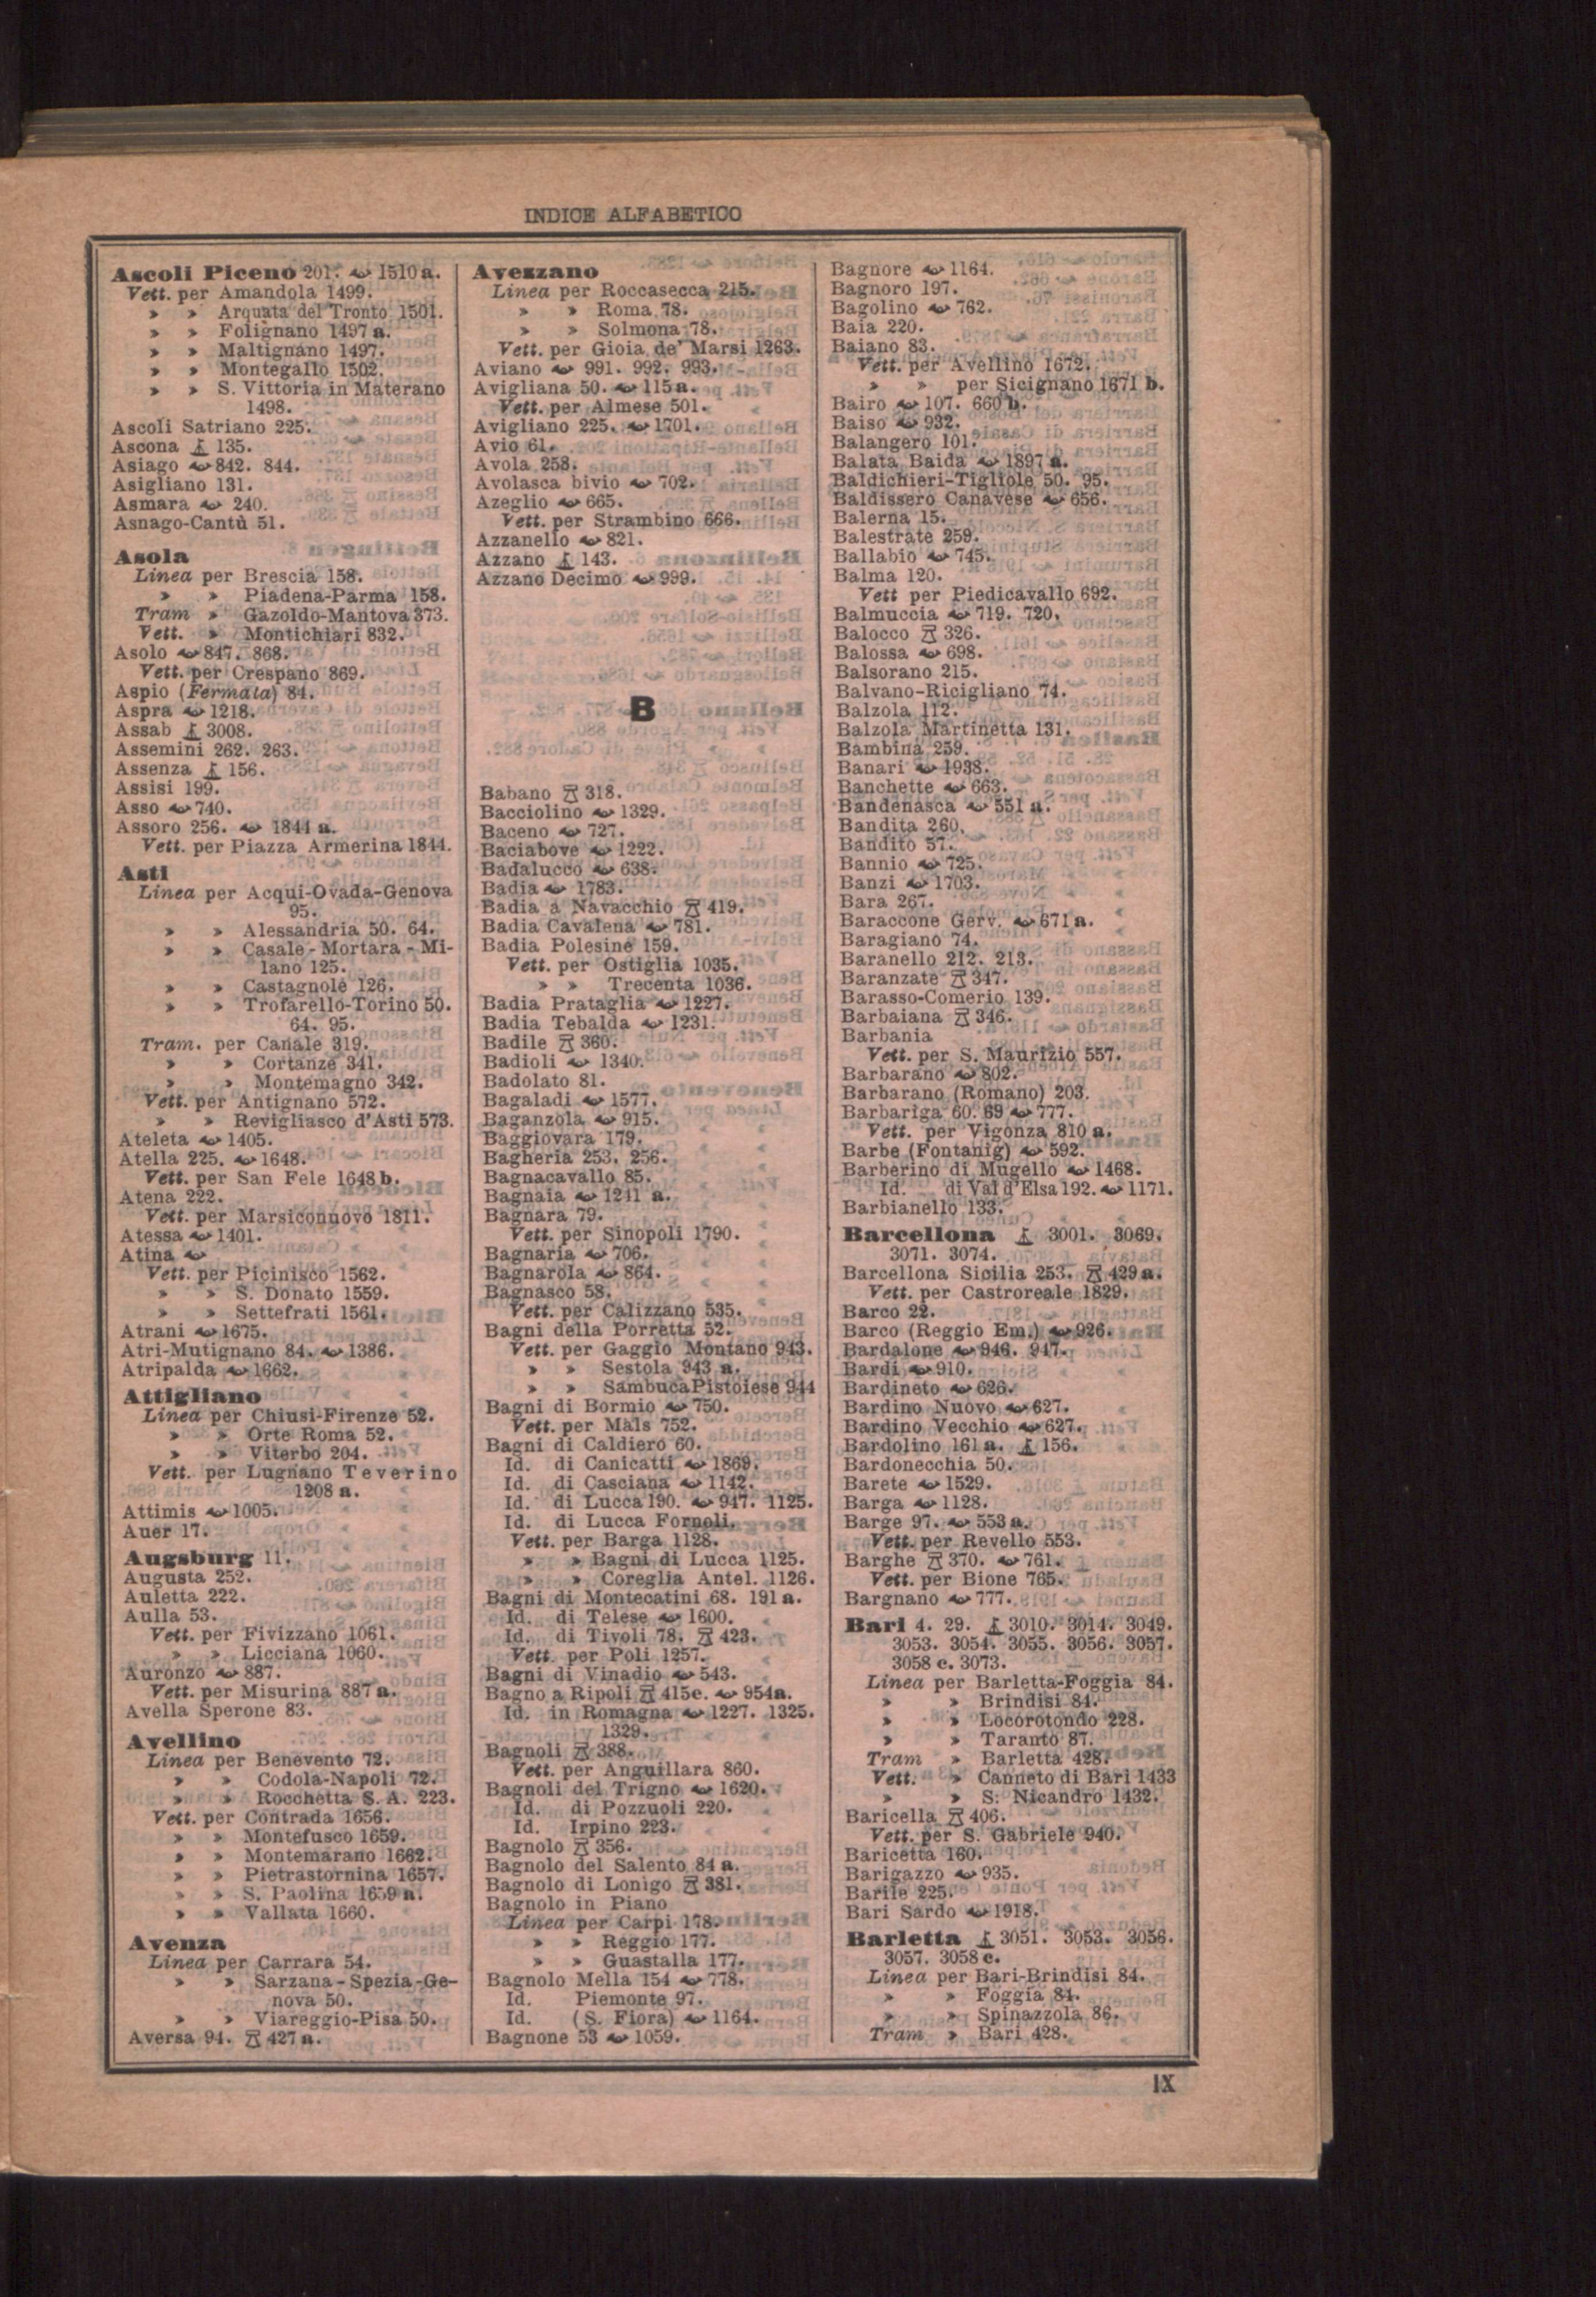 INDICE ALFABETICO
Ascoli Piceno 201. 1510 a.
Vett. per Amandola 1499.
» » Arquata del Tronto 1501.
» » Folignano 1497 a.
» » Maltignano 1497.
» » Montegallo 1502.
» » S. Vittoria in Materano
1498.
Ascoli Satriano 225.
Ascona 135.
Asiago 842. 844.
Asigliano 131.
Asmara 240.
Asnago-Cantù 51.
Asola
Linea per Brescia 158.
» » Piadena-Parma 158.
Tram » Gazoldo-Mantova 373.
Vett. » Montichiari 832.
Asolo 847. 868.
Vett. per Crespano 869.
Aspio (Fermata) 84.
Aspra 1218.
Assab 3008.
Assemini 262. 263.
Assenza 156.
Assisi 199.
Asso 740.
Assoro 256. 1844 a.
Vett. per Piazza Armerina 1844.
Asti
Linea per Acqui-Ovada-Genova
95.
» » Alessandria 50. 64.
» » Casale - Mortara - Mi-
lano 125.
» » Castagnole 126.
» » Trofarello-Torino 50.
64. 95.
Tram. per Canale 319.
» » Cortanze 341.
» » Montemagno 342.
Vett. per Antignano 572.
» » Revigliasco d'Asti 573.
Ateleta 1405.
Atella 225. 1648.
Vett. per San Fele 1648 b.
Atena 222.
Vett. per Marsiconuovo 1811.
Atessa 1401.
Atina
Vett. per Picinisco 1562.
» » S. Donato 1559.
» » Settefrati 1561.
Atrani 1675.
Atri-Mutignano 84. 1386.
Atripalda 1662.
Attigliano
Linea per Chiusi-Firenze 52.
» » Orte Roma 52.
» » Viterbo 204.
Vett. per Lugnano Teverino
1208 a.
Attimis 1005.
Auer 17.
Augsburg 11.
Augusta 252.
Auletta 222.
Aulla 53.
Vett. per Fivizzano 1061.
» » Licciana 1060.
Auronzo 887.
Vett. per Misurina 887 a.
Avella Sperone 83.
Avellino
Linea per Benevento 72.
» » Codola-Napoli 72.
» » Rocchetta S. A. 223.
Vett. per Contrada 1656.
» » Montefusco 1659.
» » Montemarano 1662.
» » Pietrastornina 1657.
» » S. Paolina 1659 a.
» » Vallata 1660.
Avenza
Linea per Carrara 54.
» » Sarzana - Spezia - Ge-
nova 50.
» » Viareggio-Pisa 50.
Aversa 94. 427 a.
Avezzano
Linea per Roccasecca 215.
» » Roma 78.
» » Solmona 78.
Vett. per Gioia de' Marsi 1263.
Aviano 991. 992. 993.
Avigliana 50. 115 a.
Vett. per Almese 501.
Avigliano 225. 1701.
Avio 61.
Avola 258.
Avolasca bivio 702.
Azeglio 665.
Vett. per Strambino 666.
Azzanello 821.
Azzano 143.
Azzano Decimo 999.
B
Babano 318.
Bacciolino 1329.
Baceno 727.
Baciabove 1222.
Badalucco 638.
Badia 1783.
Badia a Navacchio 419.
Badia Cavalena 781.
Badia Polesine 159.
Vett. per Ostiglia 1035.
» » Trecenta 1036.
Badia Prataglia 1227.
Badia Tebalda 1231.
Badile 360.
Badioli 1340.
Badolato 81.
Bagaladi 1577.
Baganzola 915.
Baggiovara 179.
Bagheria 253. 256.
Bagnacavallo 85.
Bagnaia 1211 a.
Bagnara 79.
Vett. per Sinopoli 1790.
Bagnaria 706.
Bagnarola 864.
Bagnasco 58.
Vett. per Calizzano 535.
Bagni della Porretta 52.
Vett. per Gaggio Montano 943.
» » Sestola 943 a.
» » Sambuca Pistoiese 944
Bagni di Bormio 750.
Vett. per Mals 752.
Bagni di Caldiero 60.
Id. di Canicatti 1869.
Id. di Casciana 1142.
Id. di Lucca 190. 947. 1125.
Id. di Lucca Fornoli.
Vett. per Barga 1128.
» » Bagni di Lucca 1125.
» » Coreglia Antel. 1126.
Bagni di Montecatini 68. 191 a.
Id. di Telese 1600.
Id. di Tivoli 78. 423.
Vett. per Poli 1257.
Bagni di Vinadio 543.
Bagno a Ripoli 415e. 954a.
Id. in Romagna 1227. 1325.
1329.
Bagnoli 388.
Vett. per Anguillara 860.
Bagnoli del Trigno 1620.
Id. di Pozzuoli 220.
Id. Irpino 223.
Bagnolo 356.
Bagnolo del Salento 84 a.
Bagnolo di Lonigo 381.
Bagnolo in Piano
Linea per Carpi 178.
» » Reggio 177.
» » Guastalla 177.
Bagnolo Mella 154 778.
Id. Piemonte 97.
Id. (S. Fiora) 1164.
Bagnone 53 1059.
Bagnore 1164.
Bagnoro 197.
Bagolino 762.
Baia 220.
Baiano 83.
Vett. per Avellino 1672.
» » per Sicignano 1671 b.
Bairo 107. 660 b.
Baiso 932.
Balangero 101.
Balata Baida 1897 a.
Baldichieri-Tigliole 50. 95.
Baldissero Canavese 656.
Balerna 15.
Balestrate 259.
Ballabio 745.
Balma 120.
Vett per Piedicavallo 692.
Balmuccia 719. 720.
Balocco 326.
Balossa 698.
Balsorano 215.
Balvano-Ricigliano 74.
Balzola 112.
Balzola Martinetta 131.
Bambina 259.
Banari 1938.
Banchette 663.
Bandenasca 551 a.
Bandita 260.
Bandito 57.
Bannio 725.
Banzi 1703.
Bara 267.
Baraccone Gerv. 671 a.
Baragiano 74.
Baranello 212. 213.
Baranzate 347.
Barasso-Comerio 139.
Barbaiana 346.
Barbania
Vett. per S. Maurizio 557.
Barbarano 802.
Barbarano (Romano) 203.
Barbariga 60. 69 777.
Vett. per Vigonza 810 a.
Barbe (Fontanig) 592.
Barberino di Mugello 1468.
Id. di Val d'Elsa 192. 1171.
Barbianello 133.
Barcellona 3001. 3069.
3071. 3074.
Barcellona Sicilia 253. 429 a.
Vett. per Castroreale 1829.
Barco 22.
Barco (Reggio Em.) 926.
Bardalone 946. 947.
Bardi 910.
Bardineto 626.
Bardino Nuovo 627.
Bardino Vecchio 627.
Bardolino 161 a. 156.
Bardonecchia 50.
Barete 1529.
Barga 1128.
Barge 97. 553 a.
Vett. per Revello 553.
Barghe 370. 761.
Vett. per Bione 765.
Bargnano 777.
Bari 4. 29. 3010. 3014. 3049.
3053. 3054. 3055. 3056. 3057.
3058 c. 3073.
Linea per Barletta-Foggia 84.
» » Brindisi 84.
» » Locorotondo 228.
» » Taranto 87.
Tram » Barletta 428.
Vett. » Canneto di Bari 1433
» » S. Nicandro 1432.
Baricella 406.
Vett. per S. Gabriele 940.
Baricetta 160.
Barigazzo 935.
Barile 225.
Bari Sardo 1918.
Barletta 3051. 3053. 3056.
3057. 3058 c.
Linea per Bari-Brindisi 84.
» » Foggia 84.
» » Spinazzola 86.
Tram » Bari 428.
IX